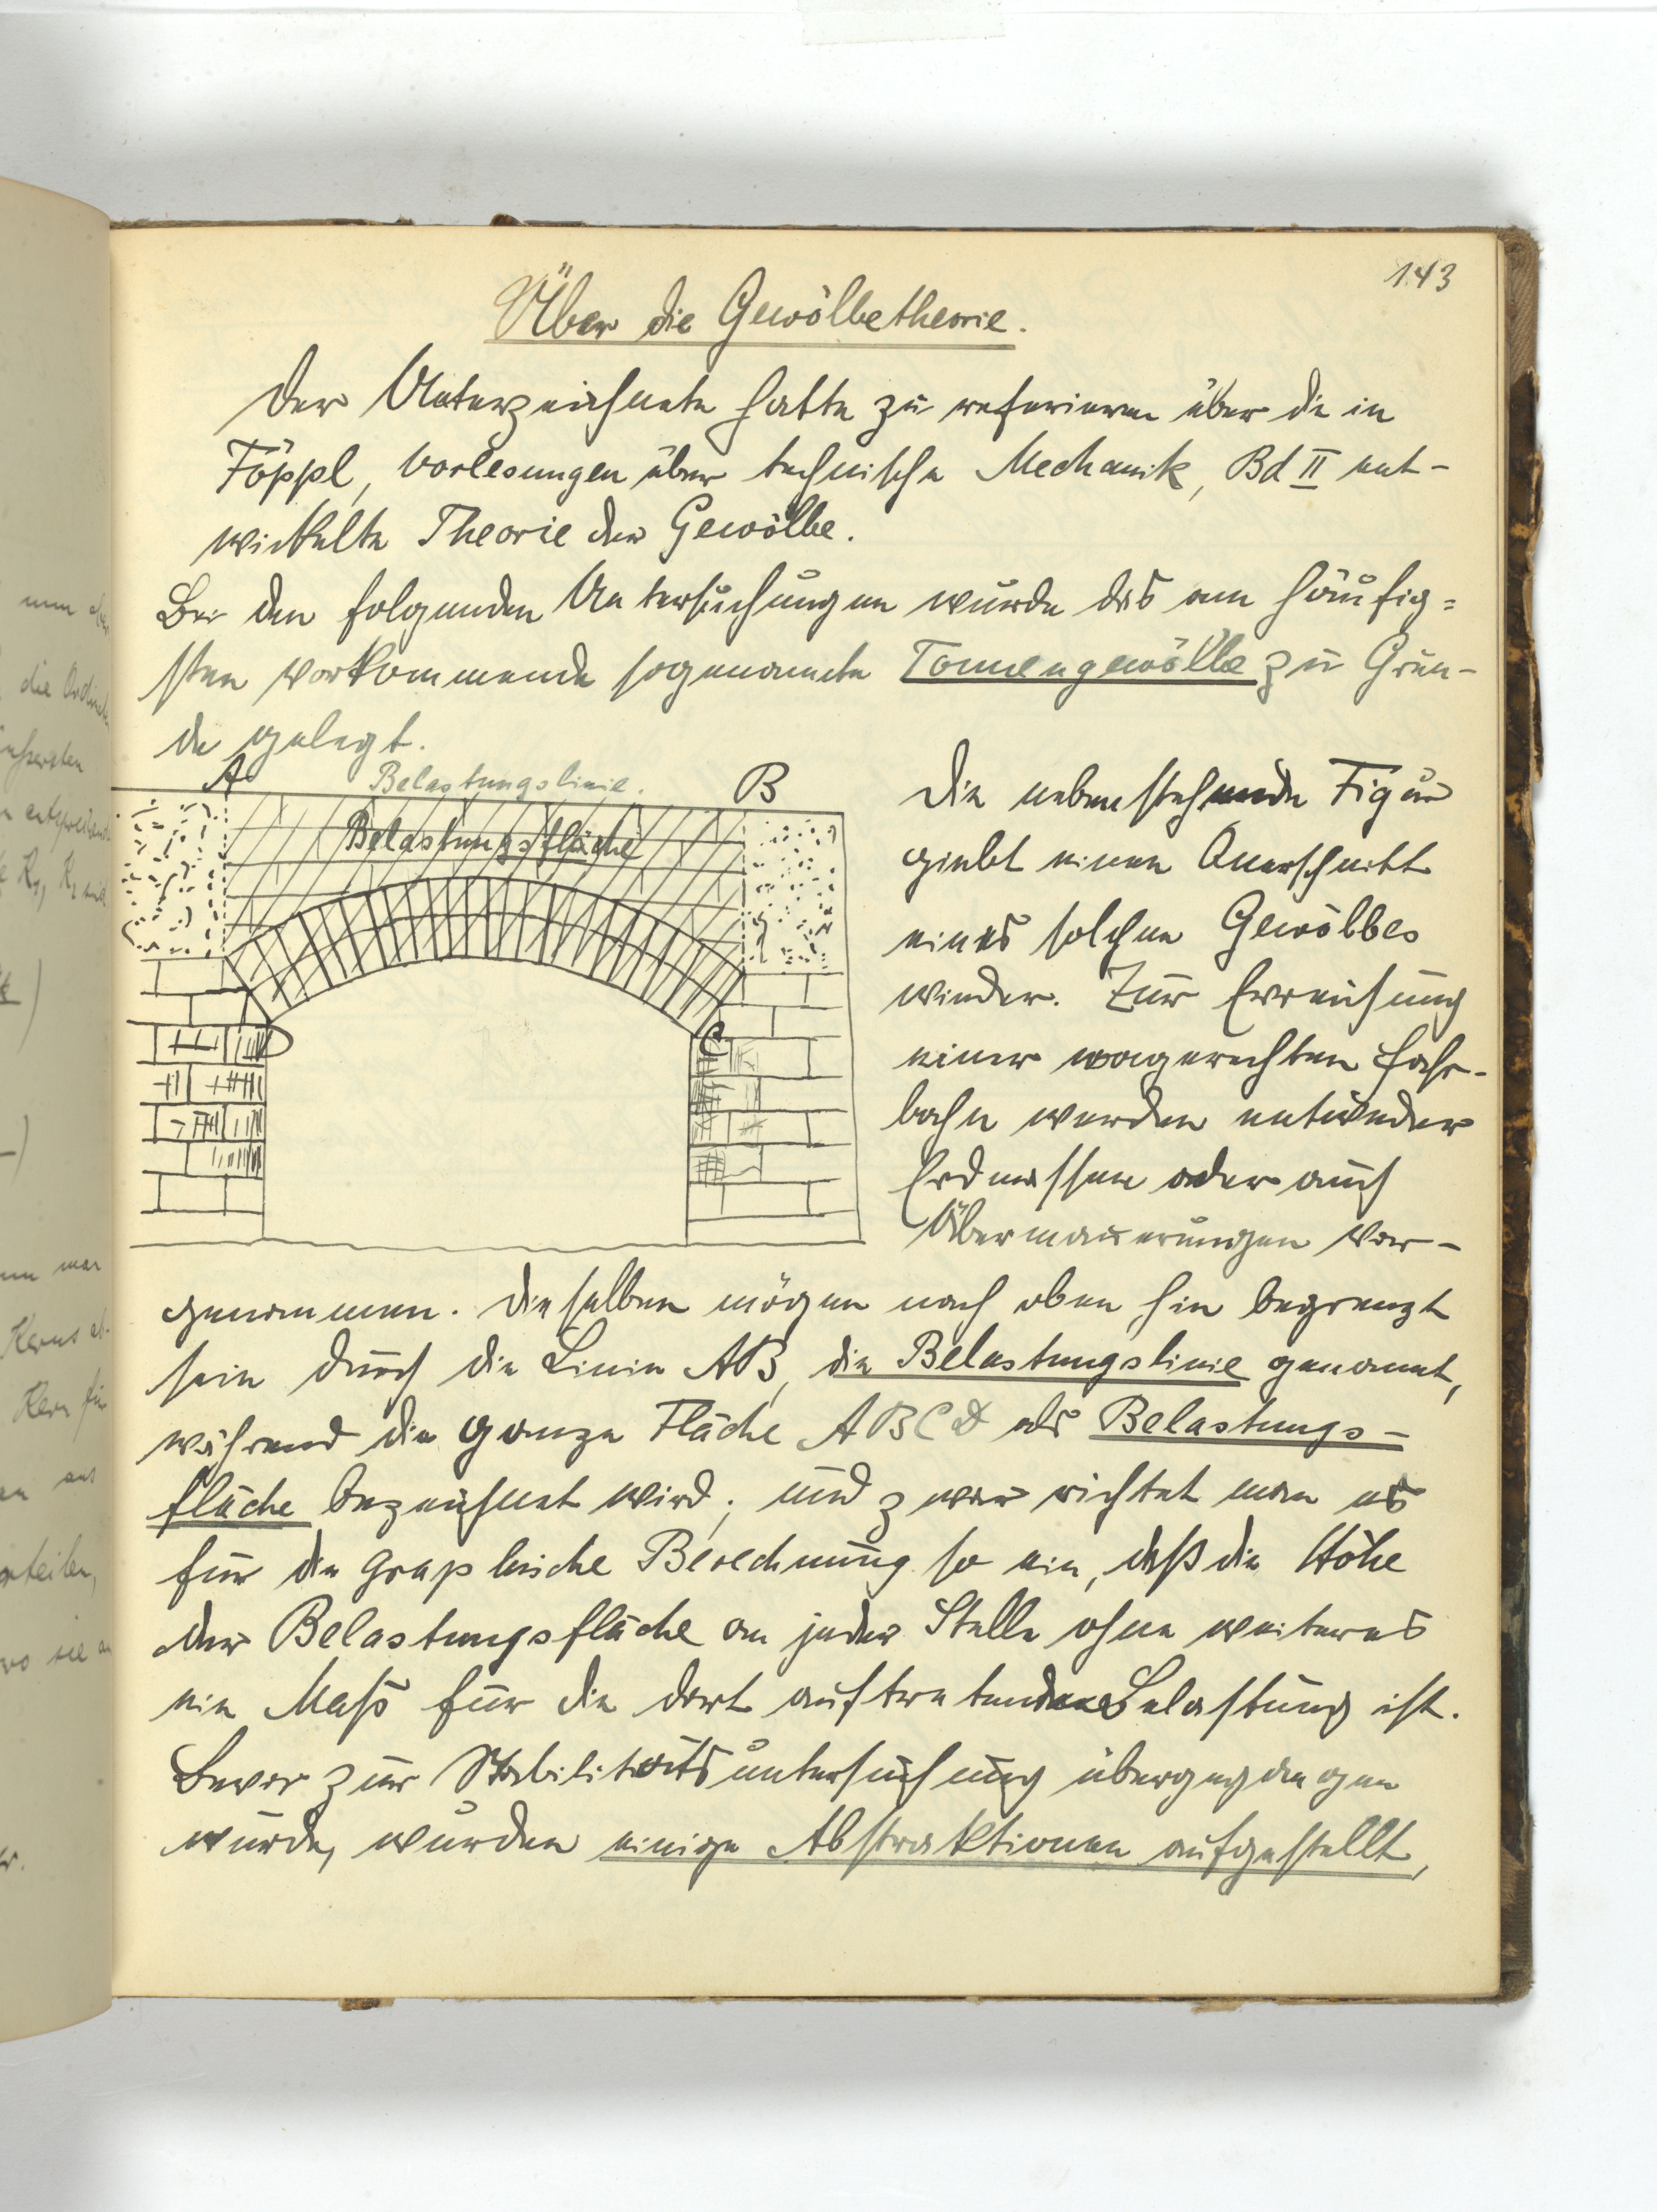 143
Über die Gewölbetheorie.
Der Unterzeichnete hatte zu referieren über die in
Föppl, Vorlesungen über technische Mechanik, Bd II ent-
wickelte Theorie der Gewölbe.
Bei den folgenden Untersuchungen wurde das am häufig=
sten vorkommende sogenannte Tonnengewölbe zu Grun-
de gelegt.
A Belastungslinie. B
Belastungsfläche
D C
Die nebenstehende Figur
giebt einen Querschnitt
eines solchen Gewölbes
wieder. Zur Erreichung
einer wagerechten Fahr-
bahn werden entweder
Erdmassen oder auch
Übermauerungen vor-
genommen. Dieselben mögen nach oben hin begrenzt
sein durch die Linie AB, die Belastungslinie genannt,
während die ganze Fläche ABCD als Belastungs-
fläche bezeichnet wird; und zwar richtet man es
für die graphische Berechnung so ein, daß die Höhe
der Belastungsfläche an jeder Stelle ohne weiteres
ein Maß für die dort auftretende Belastung ist.
Bevor zur Stabilitätsuntersuchung übergegangen
wurde, wurden einige Abstraktionen aufgestellt,
die